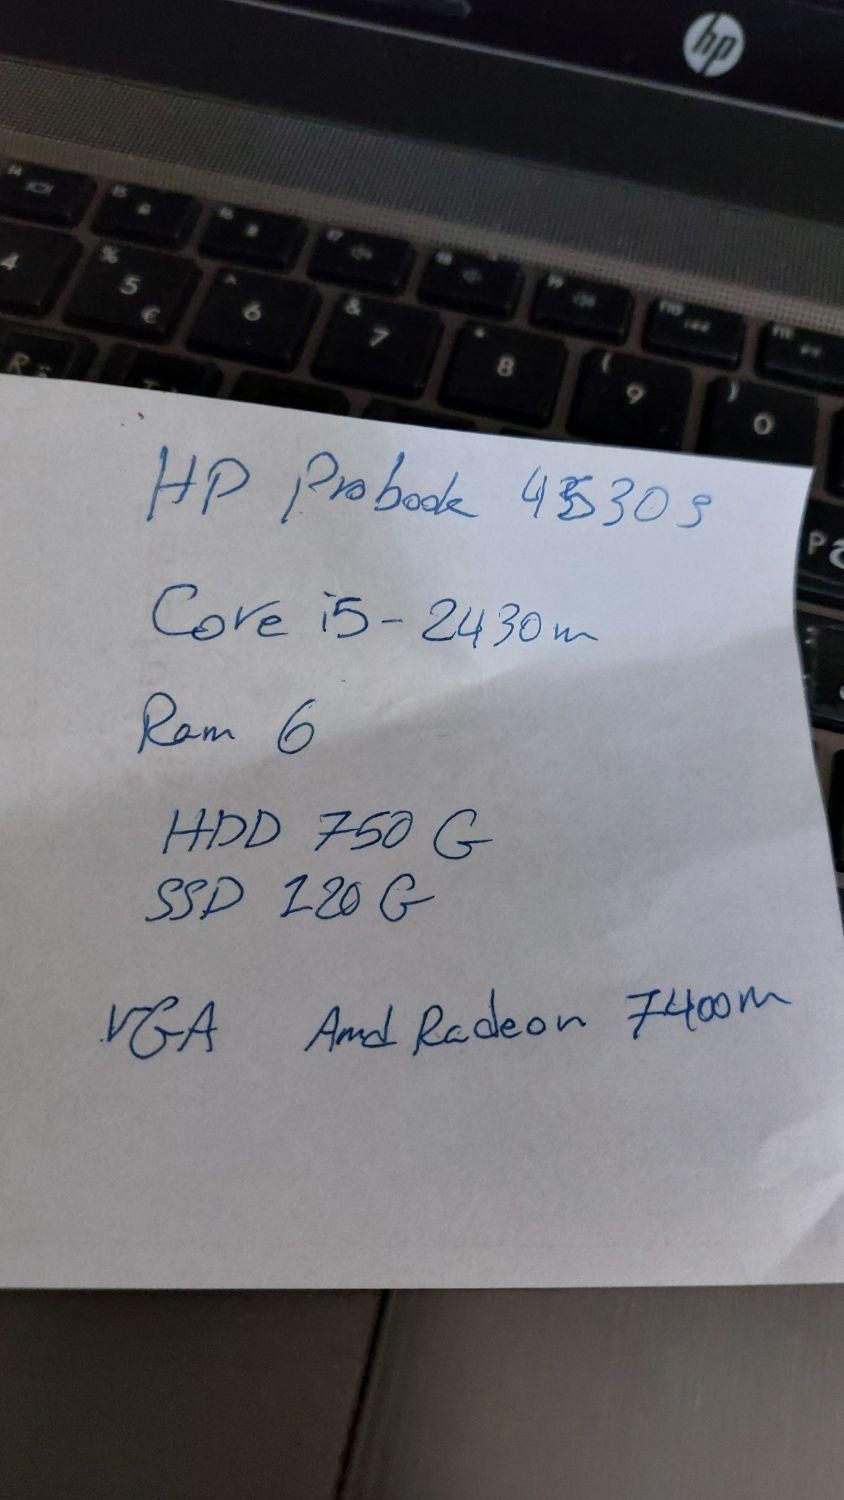 hp
4 % 5 € ^ 6 & 7 * 8 ( 9 ) 0
R
HP Probook 4530s
Core i5-2430m
Ram 6
HDD 750 G
SSD 120 G
VGA Amd Radeon 7400m